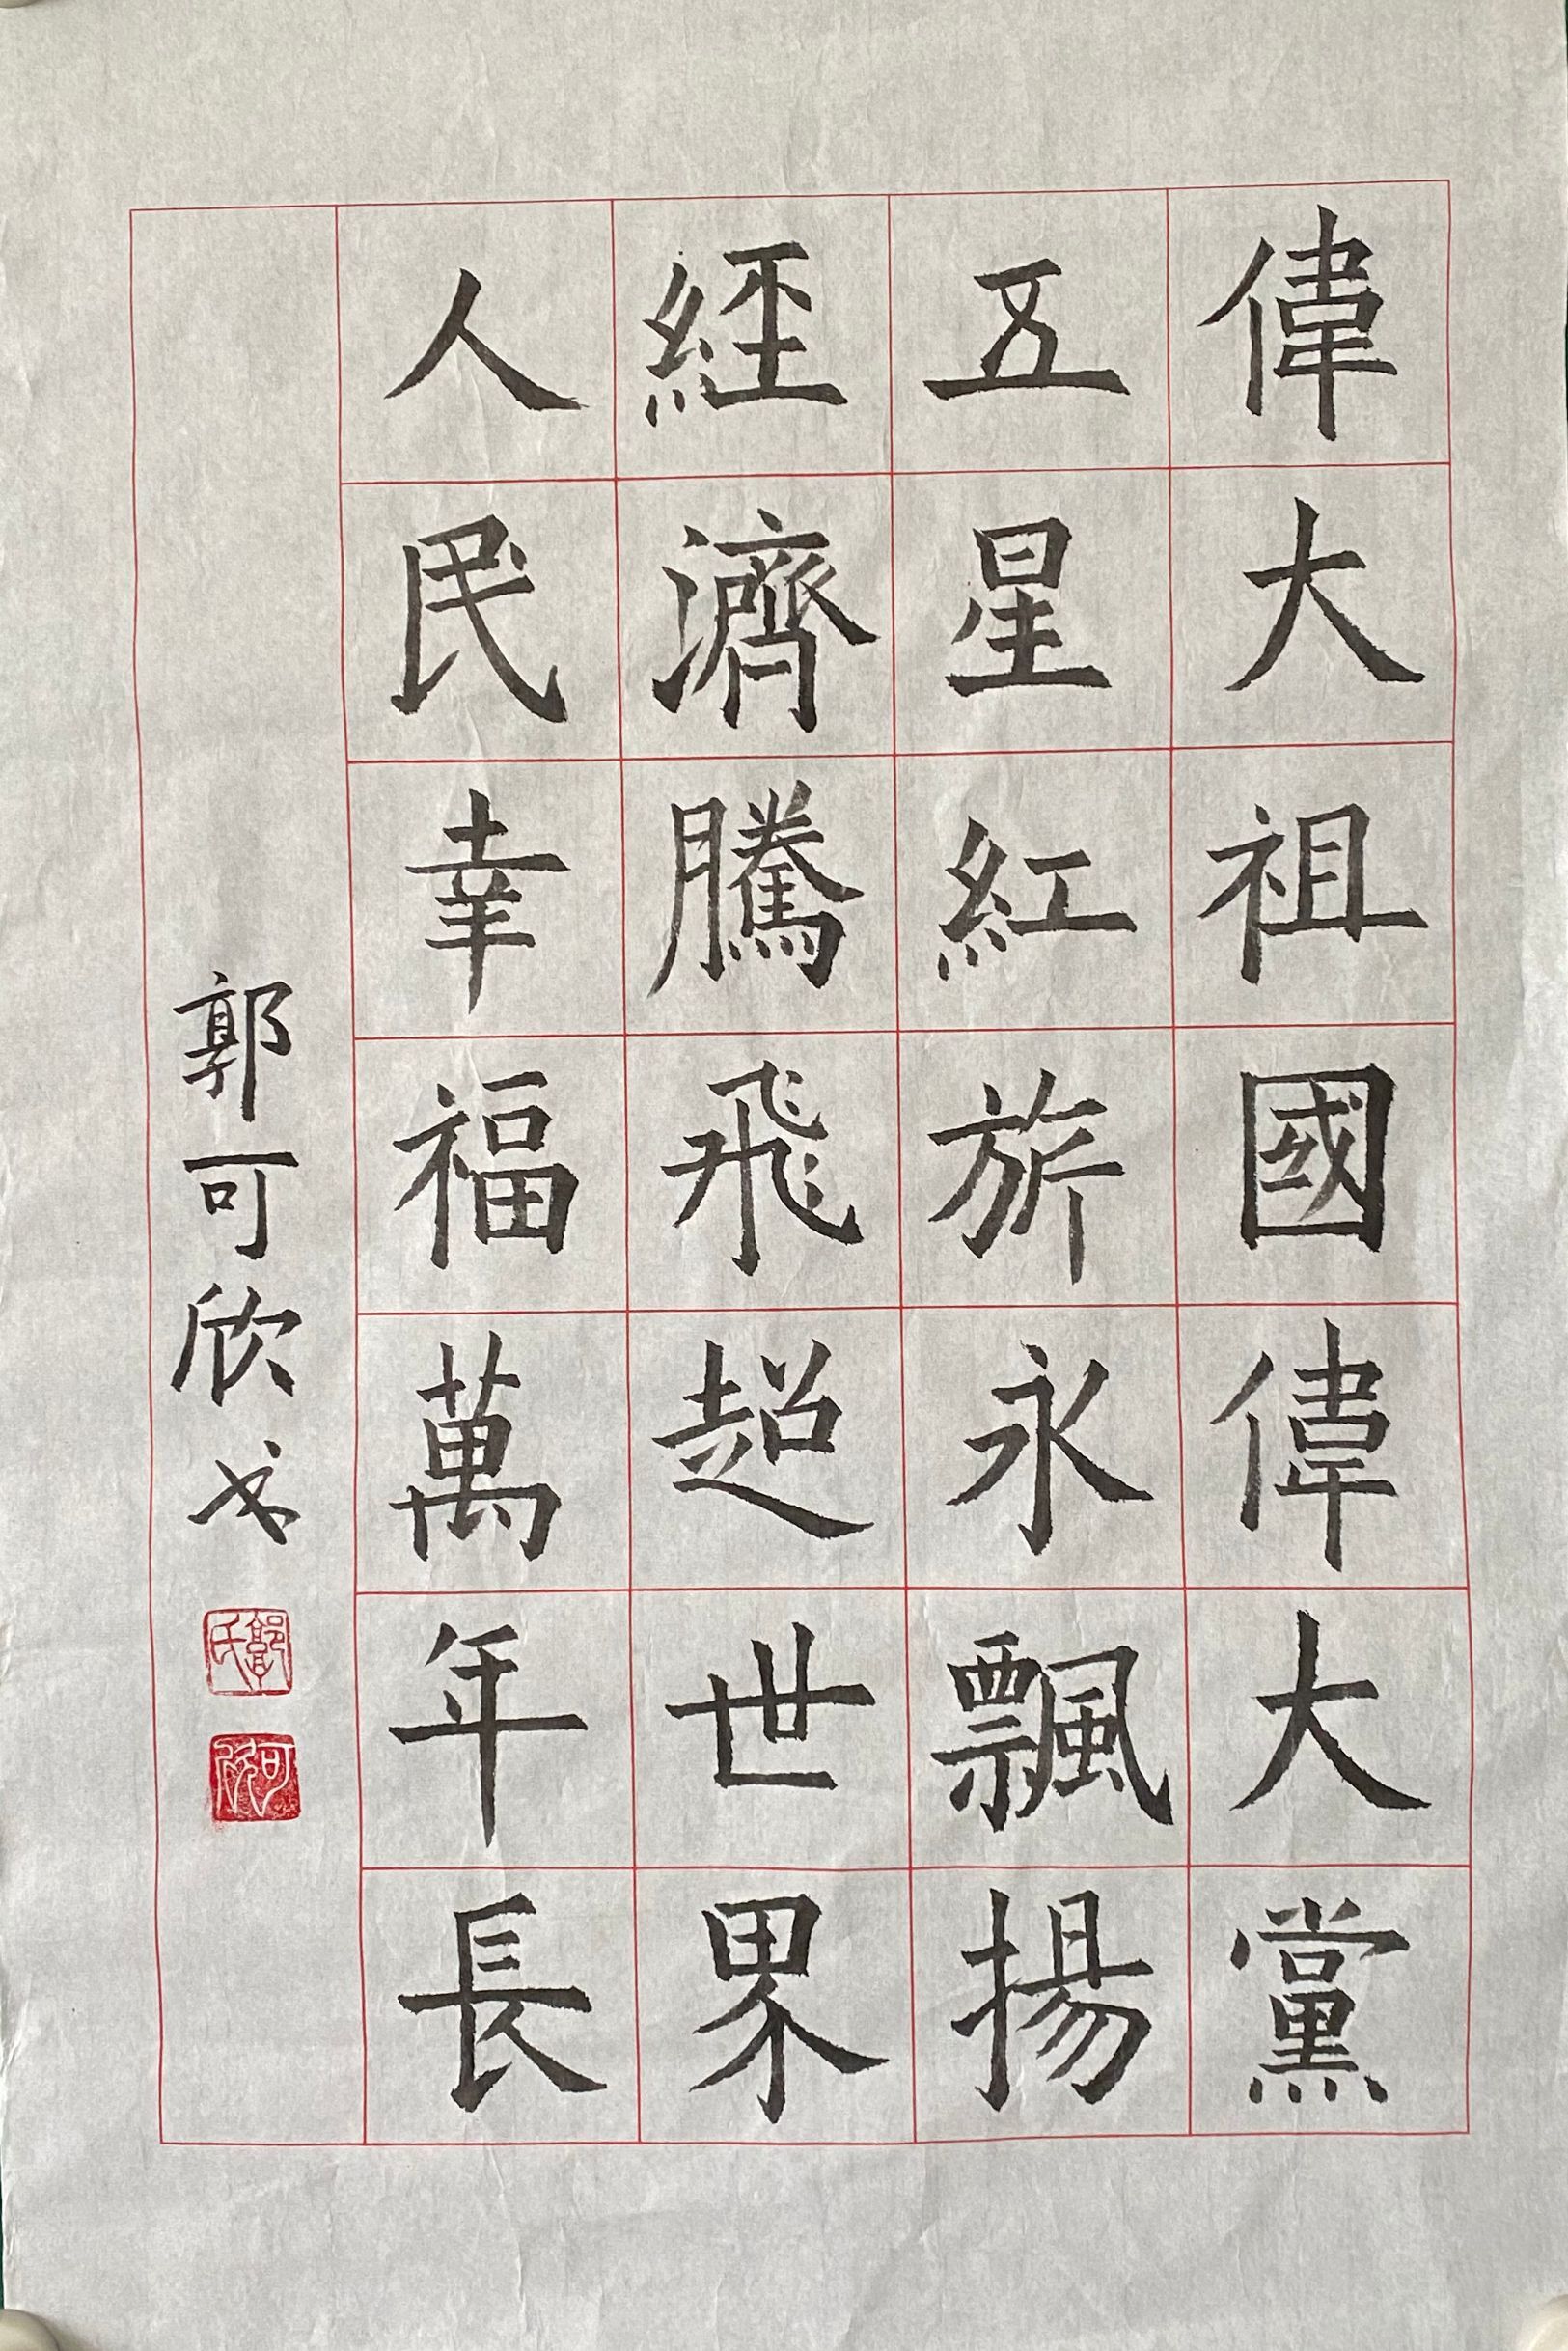 偉大祖國偉大黨
五星紅旂永飄揚
經濟騰飛超世界
人民幸福萬年長
郭可欣书
郭氏
可欣